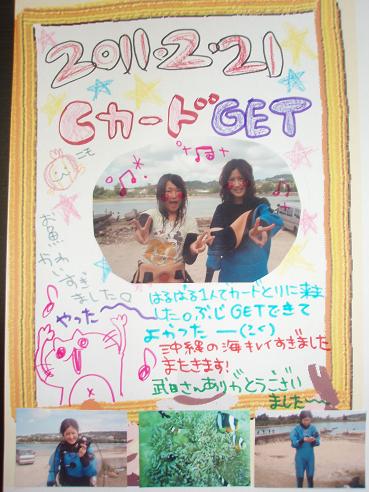 2011.2.21
CカードGET
ニモ
お魚
かわい
すぎ
ました。
やった〜
はるばる1人でカードとりに来ま
した。ぶじGETできて
よかったー
沖縄の海キレイすぎました
またきます!
武田さんありがとうござい
ました〜